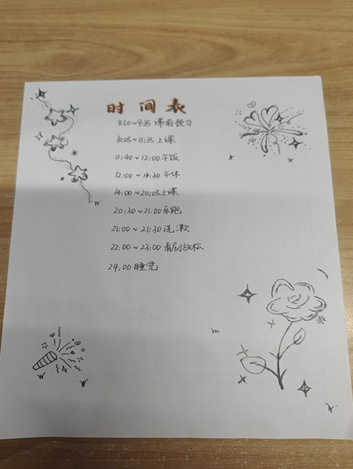 时间表
8:50~9:35 课前预习
10:05~11:35上课
11:40~12:00午饭
12:00~14:30午休
14:00~20:05上课
20:30~21:00乐跑
21:00~21:30洗漱
22:00~23:00看剧放松
24:00睡觉